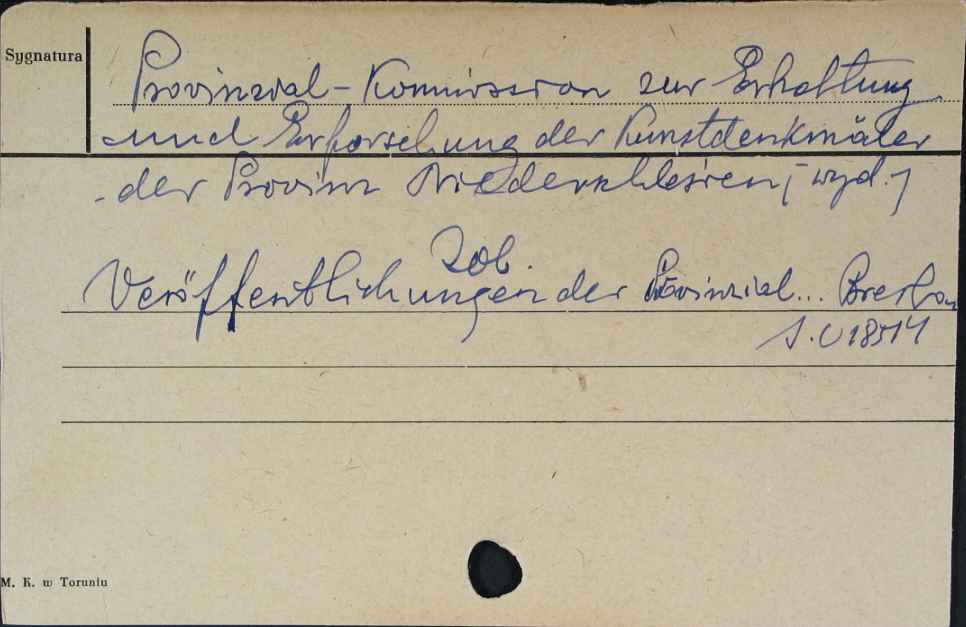 Sygnatura
Provinzial-Kommission zur Erhaltung
und Erforschung der Kunstdenkmäler
der Provinz Niederschlesien, wyd.
Zob.
Veröffentlichungen der Provinzial... Breslau
S.U 18514
M. K. w Toruniu